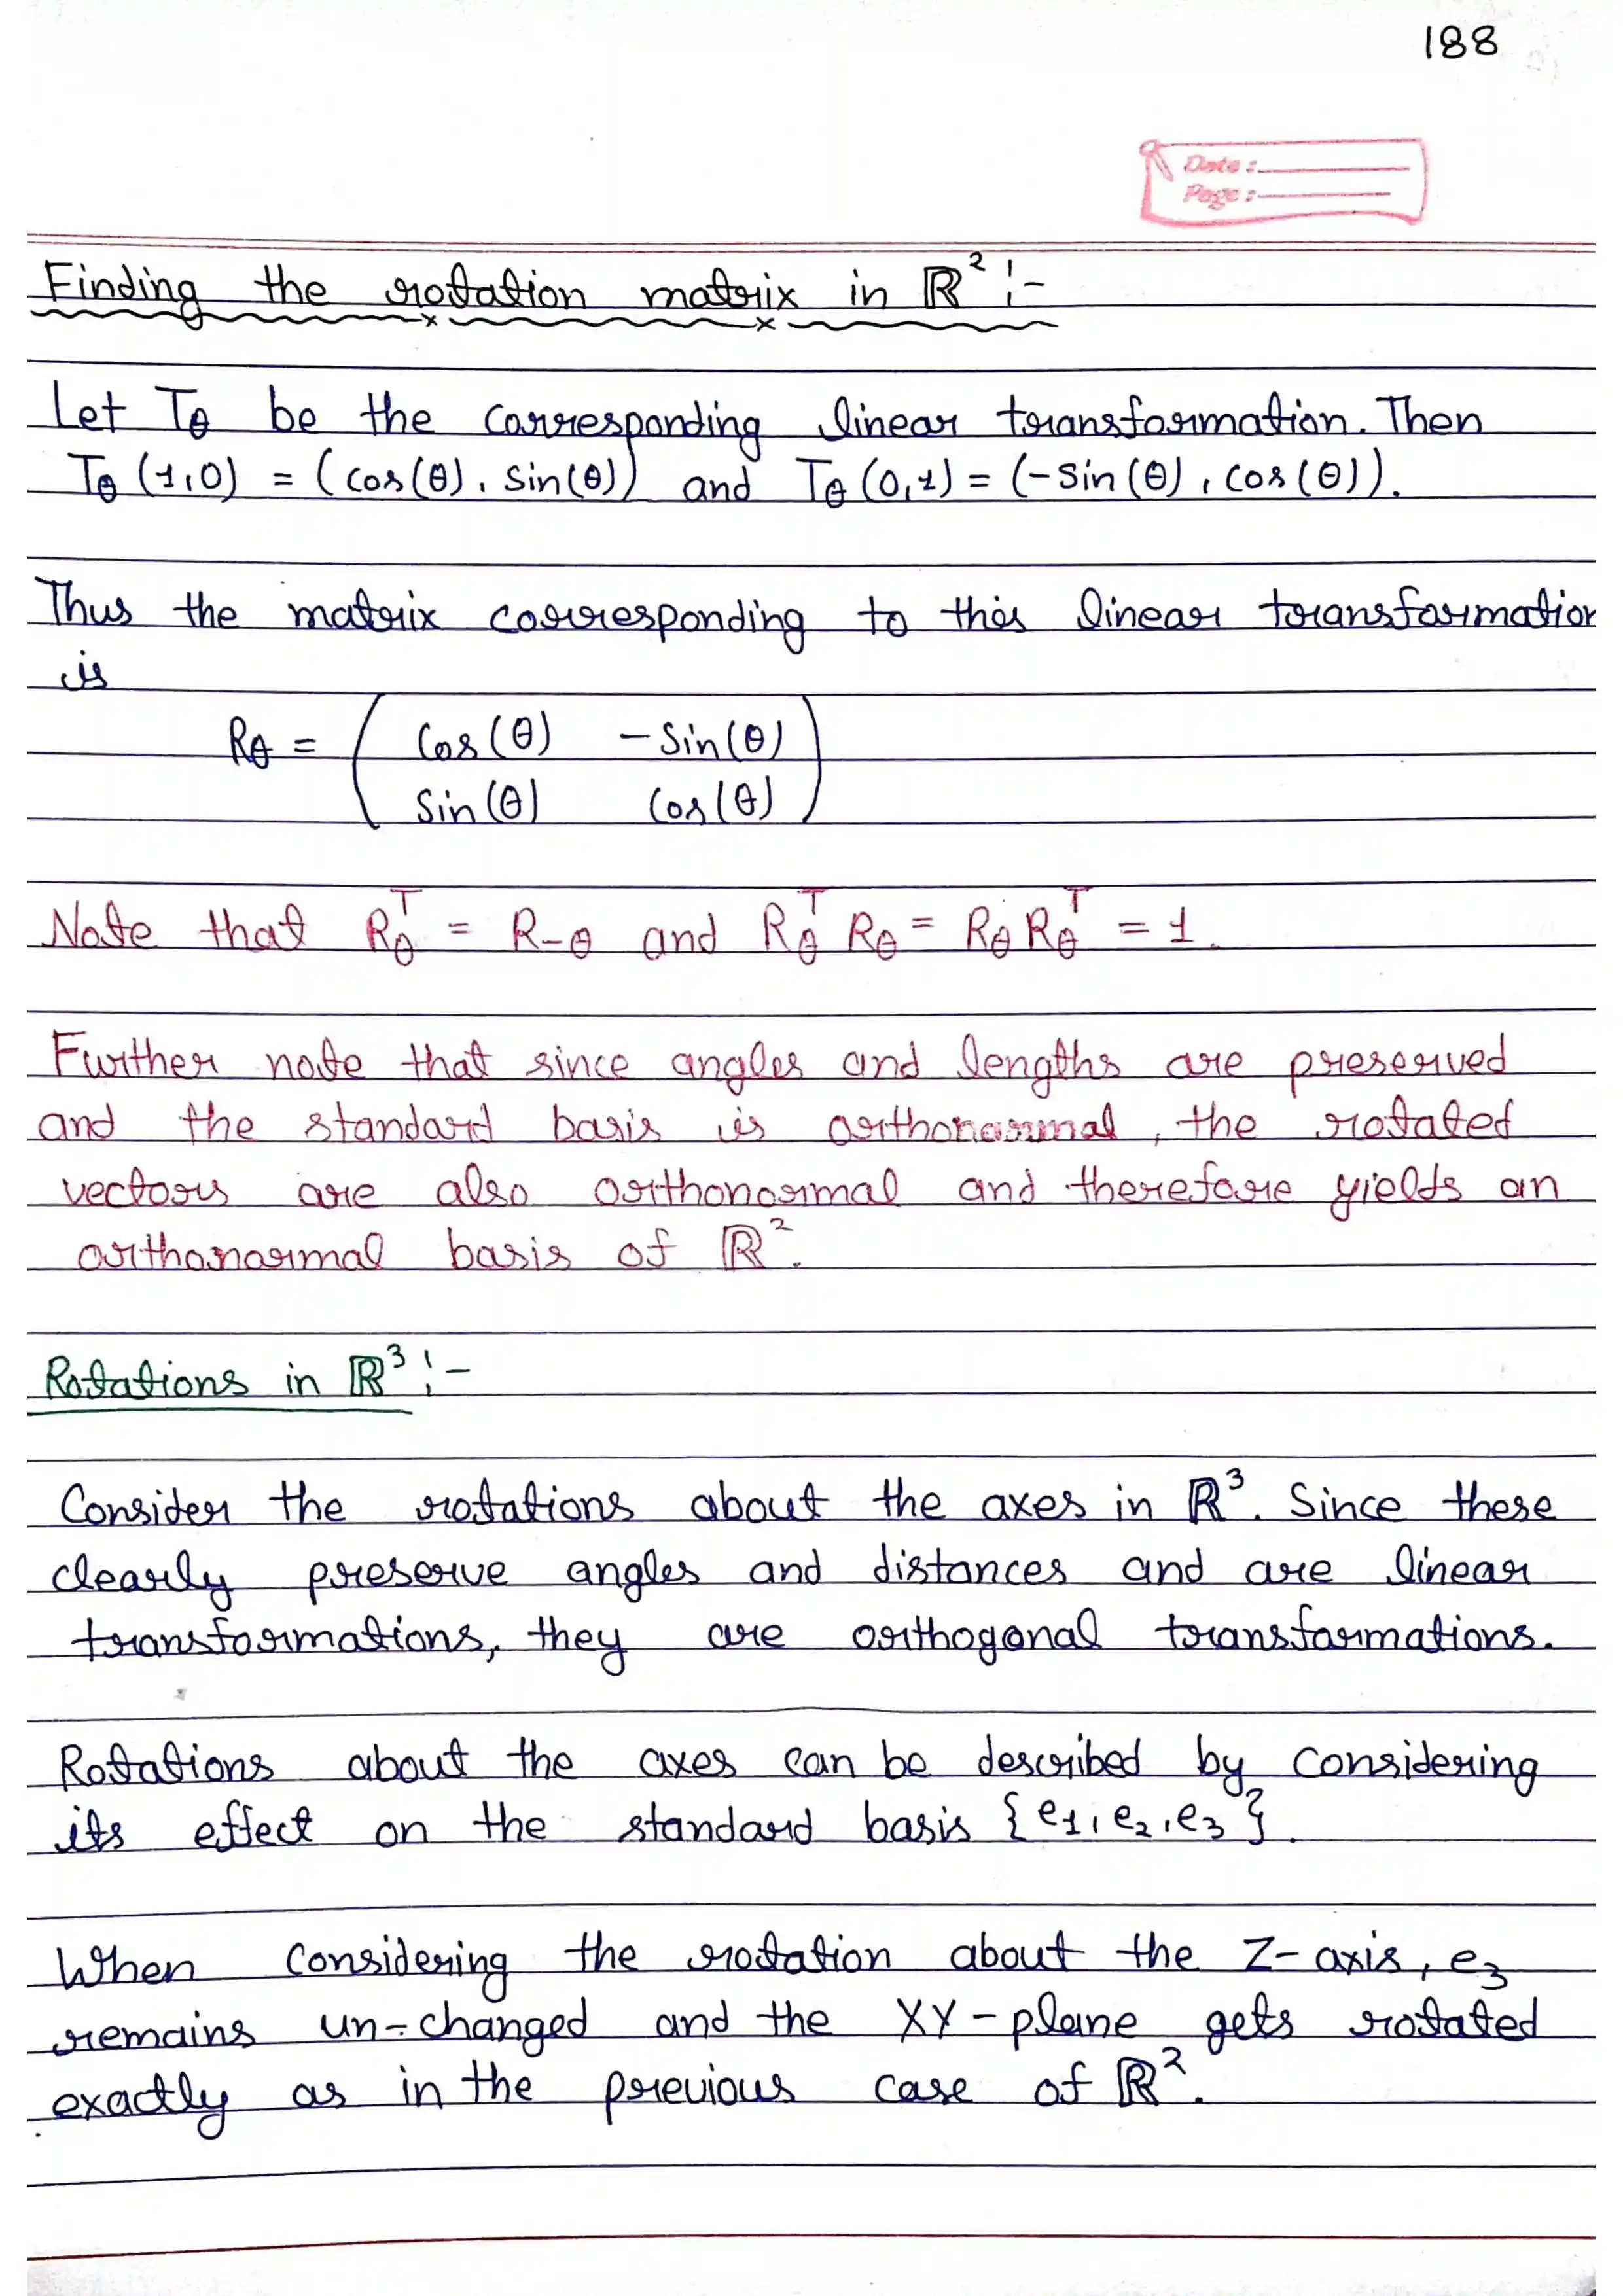 188
Date :
Page :
Finding the rotation matrix in ℝ² :-
Let Tθ be the corresponding linear transformation. Then
Tθ (1,0) = (cos(θ), sin(θ)) and Tθ (0,1) = (-sin(θ), cos(θ)).
Thus the matrix corresponding to this linear transformation
is
Rθ = ( Cos(θ) -Sin(θ)
Sin(θ) Cos(θ) )
Note that Rθᵀ = R-θ and Rθᵀ Rθ = Rθ Rθᵀ = 1.
Further note that since angles and lengths are preserved
and the standard basis is orthonormal, the rotated
vectors are also orthonormal and therefore yields an
orthonormal basis of ℝ².
Rotations in ℝ³ :-
Consider the rotations about the axes in ℝ³. Since these
clearly preserve angles and distances and are linear
transformations, they are orthogonal transformations.
Rotations about the axes can be described by considering
its effect on the standard basis {e₁, e₂, e₃}.
When considering the rotation about the Z-axis, e₃
remains un-changed and the XY-plane gets rotated
exactly as in the previous case of ℝ².